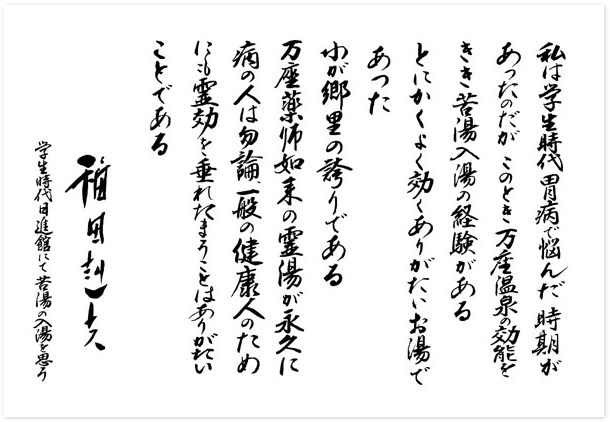 私は学生時代胃病で悩んだ時期が
あったのだがこのとき万座温泉の効能を
きき苦湯入湯の経験がある
とにかくよく効くありがたいお湯で
あった
わが郷里の誇りである
万座薬師如来の霊湯が永久に
病の人は勿論一般の健康人のため
にも霊効を垂れたまうことはありがたい
ことである
福田赳夫
学生時代日進館にて苦湯の入湯を思う